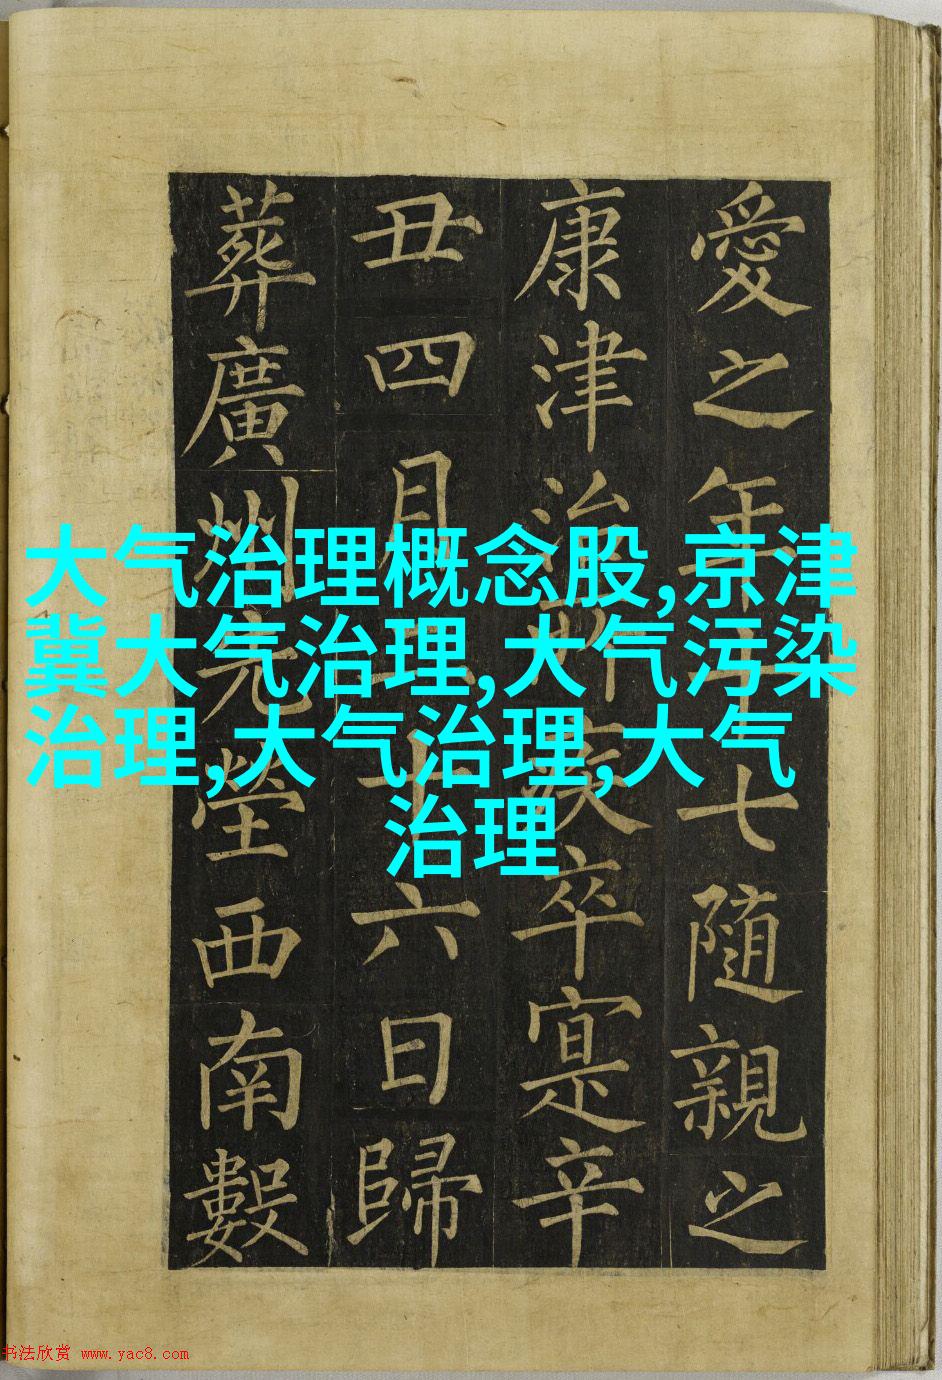 愛之年七隨親之
康津治所疾卒寔辛
丑四月十六日歸
葬廣州先塋西南數
大气治理概念股,京津
冀大气治理,大气污染
治理,大气治理,大气
治理
书法欣赏 www.yac8.com